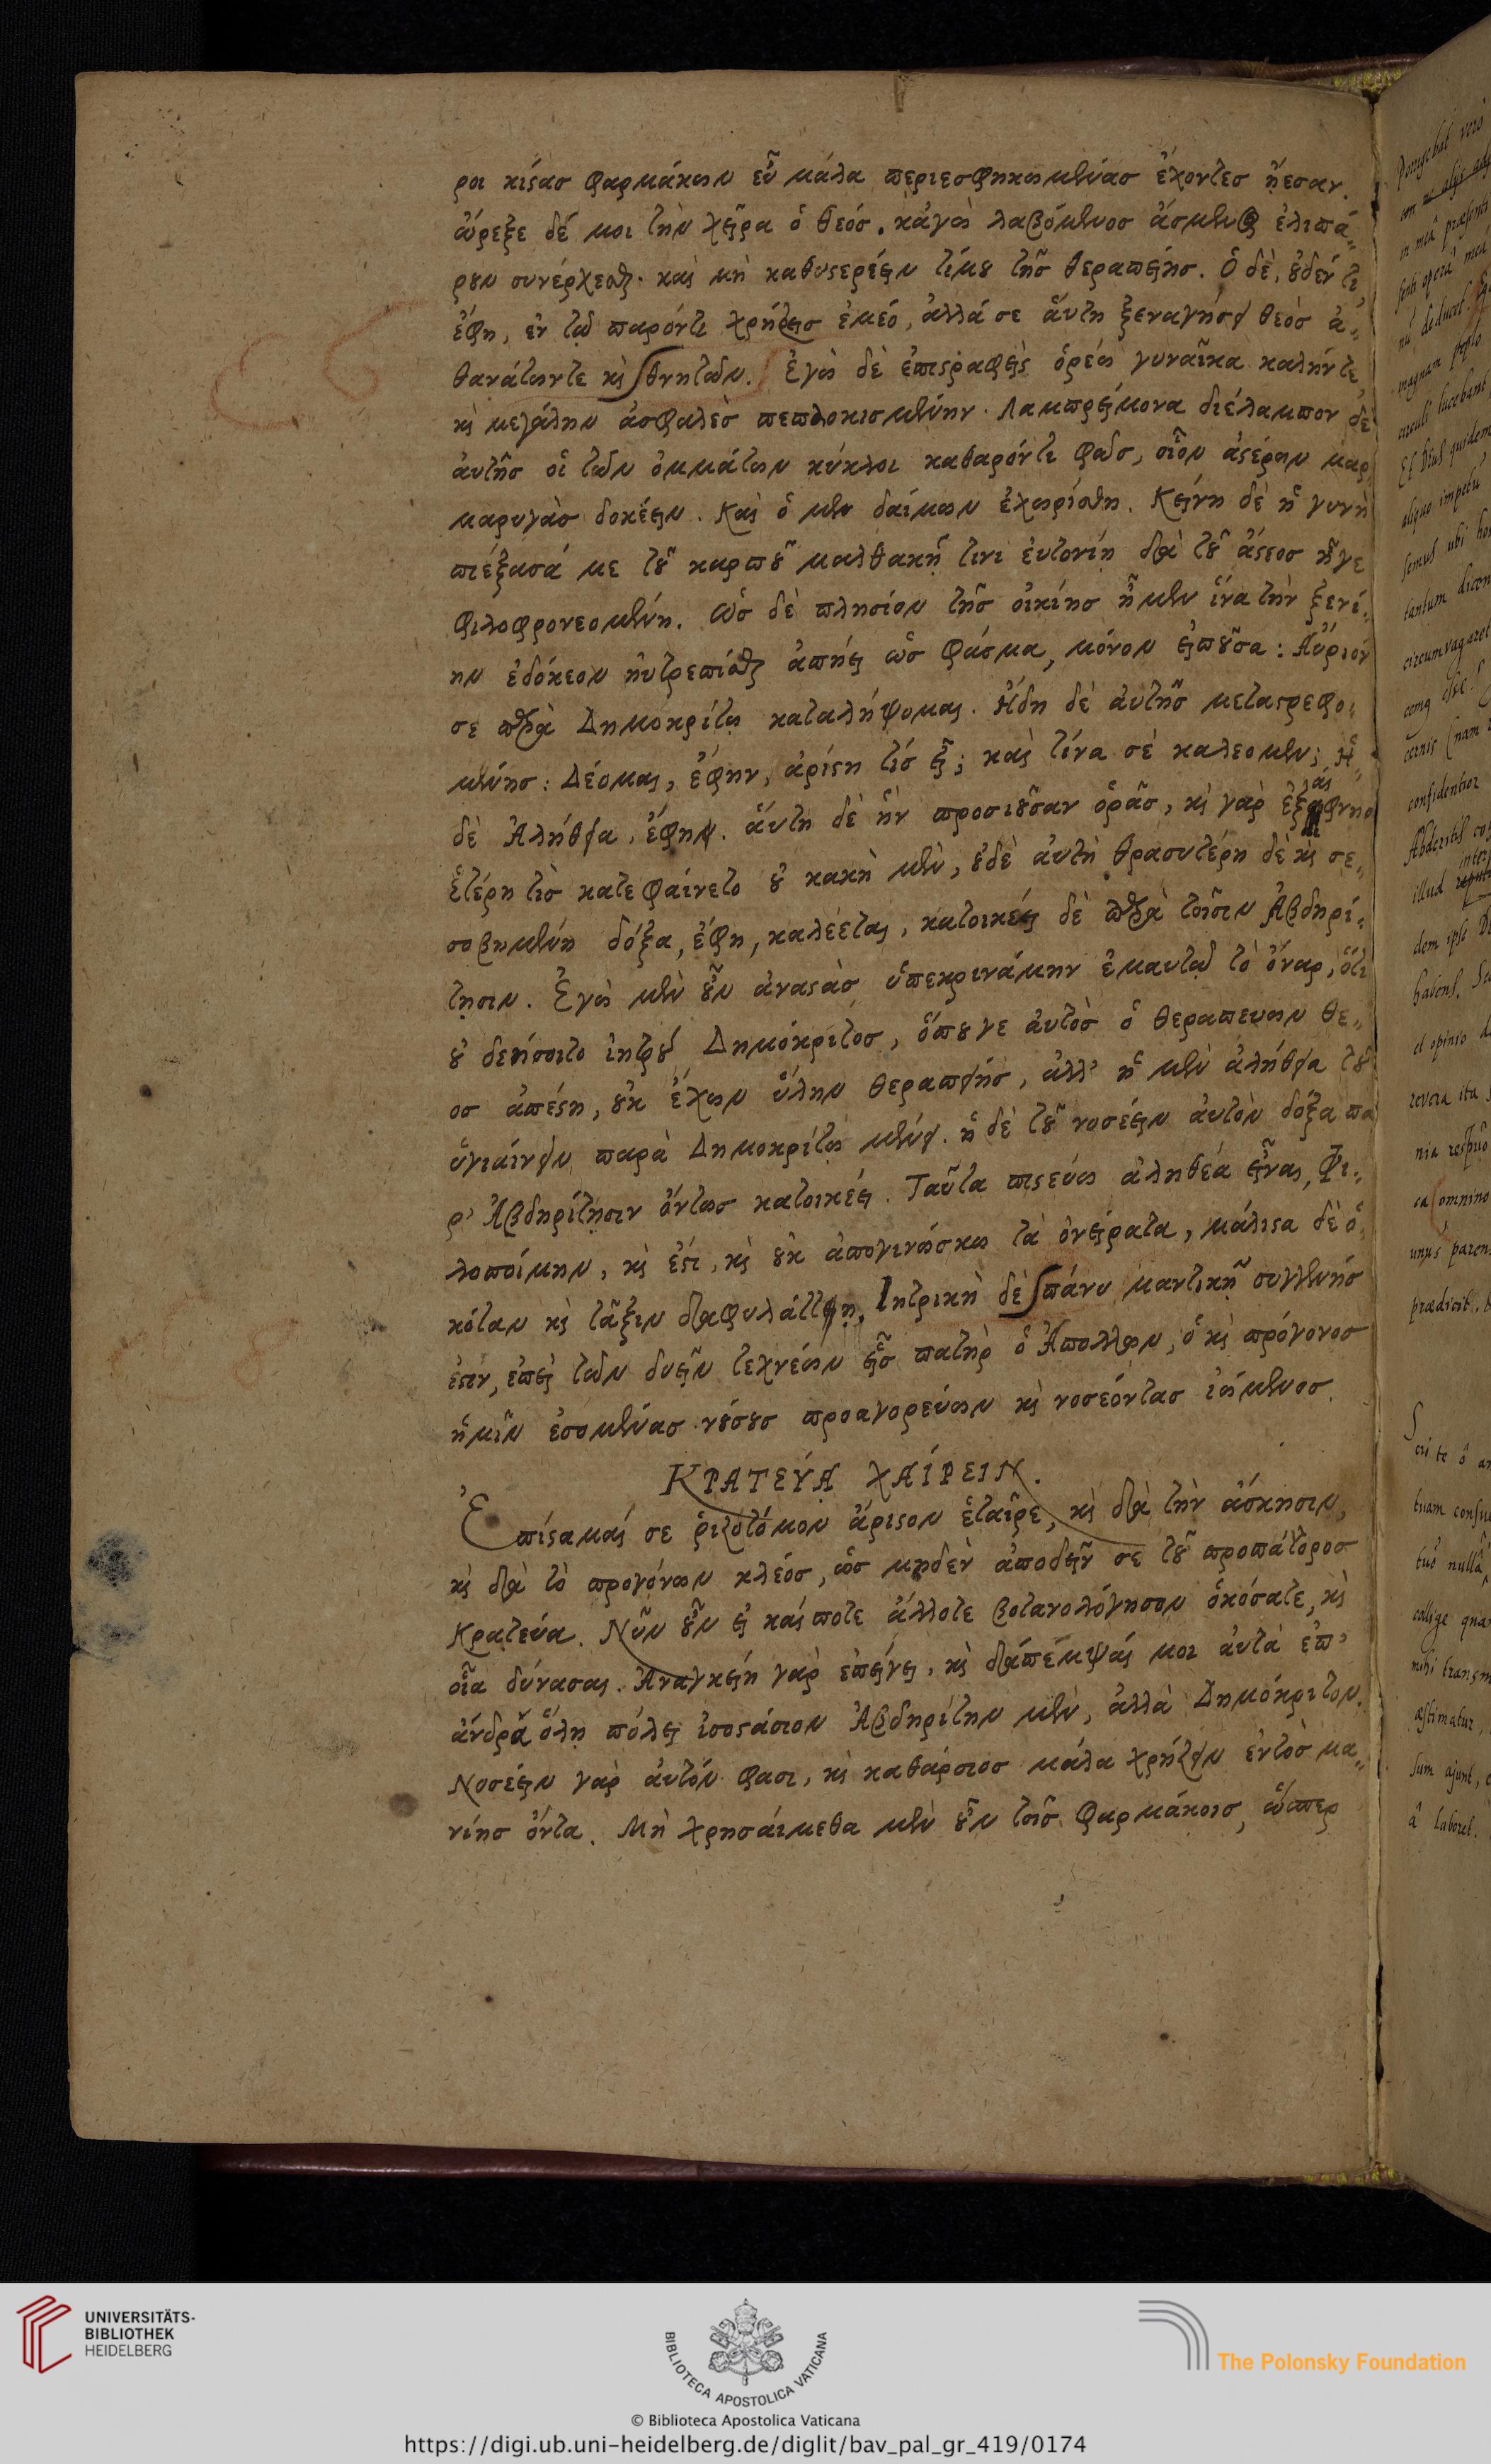 ροι κίστας φαρμάκων εὖ μάλα περιεσφηκωμένας ἔχοντες ᾔεσαν.
ὤρεξε δέ μοι τὴν χεῖρα ὁ θεός. κᾀγὼ λαβόμενος ἄσμενος ἐλιπά-
ρουν συνέρχεσθαι. καὶ μὴ καθυστερέειν τί μου τῆς θεραπείης. Ὁ δὲ, οὐδέν τι
ἔφη, ἐν τῷ παρόντι χρῄζεις ἐμέο, ἀλλά σε αὕτη ξεναγήσει θεὸς ἀ-
θανάτων τε καὶ θνητῶν. Ἐγὼ δὲ ἐπιστραφεὶς ὁρέω γυναῖκα καλήν τε
καὶ μεγάλην ἀσφαλὲς πεπλοκισμένην. Λαμπρείμονα διέλαμπον δὲ
ἀυτῆς οἱ τῶν ὀμμάτων κύκλοι καθαρόν τι φῶς, οἷον ἀστέρων μαρ
μαρυγὰς δοκέειν. Καὶ ὁ μὲν δαίμων ἐχωρίσθη. Κείνη δὲ ἡ γυνὴ
πιέξασά με τοῦ καρποῦ μαλθακῇ τινι ἐυτονίῃ διὰ τοῦ ἄστεος ἦγε
φιλοφρονεομένη. ὡς δὲ πλησίον τῆς οἰκίης ἦμεν ἵνα τὴν ξενί-
ην ἐδόκεον ηὐτρεπίσθαι ἀπῄει ὡς φάσμα, μόνον εἰποῦσα: Αὔριόν
σε παρὰ Δημοκρίτῳ καταλήψομαι. Ἤδη δὲ ἀυτῆς μεταστρεφο-
μένης: Δέομαι, ἔφην, ἀρίστη τίς εἶ; καὶ τίνα σὲ καλέομεν; Ἡ
δὲ Ἀλήθεια, ἔφην. αὕτη δὲ ἣν προσιοῦσαν ὁρᾷς, καὶ γὰρ ἐξαίφνης
ἑτέρη τὶς κατεφαίνετο οὐ κακὴ μὲν, οὐδὲ ἀυτὴ θρασυτέρη δὲ καὶ σε-
σοβημένη δόξα, ἔφη, καλέεται, κατοικέει δὲ παρὰ τοῖσιν Ἀβδηρί-
τῃσιν. Ἐγὼ μὲν οὖν ἀναστὰς ὑπεκρινάμην ἐμαυτῷ τὸ ὄναρ, ὅτι
οὐ δεήσοιτο ἰητροῦ Δημόκριτος, ὅπου γε ἀυτὸς ὁ θεραπεύων θε-
ος ἀπέστη, οὐκ ἔχων ὕλην θεραπείης, ἀλλ' ἡ μὲν ἀλήθεια τοῦ
ὑγιαίνειν παρὰ Δημοκρίτῳ μένει. ἡ δὲ τοῦ νοσέειν ἀυτὸν δόξα πα
ρ' Ἀβδηρίτῃσιν ὄντως κατοικέει. Ταῦτα πιστεύω ἀληθέα εἶναι, Φι-
λοποίμην, καὶ ἔστι, καὶ οὐκ ἀπογινώσκω τὰ ὀνείρατα, μάλιστα δὲ ὁ
κόταν καὶ τάξιν διαφυλάττῃ. Ἰητρικὴ δὲ πάνυ μαντικῇ συγγενής
ἐστιν, ἐπεὶ τῶν δυεῖν τεχνέων εἷς πατὴρ ὁ Ἀπόλλων, ὁ καὶ πρόγονος
ἡμῖν ἐσομένας νούσους προαγορεύων καὶ νοσέοντας ἰώμενος.
ΚΡΑΤΕΎΑ ΧΑΊΡΕΙΝ.
Ἐπίσταμαί σε ῥιζοτόμον ἄριστον ἑταῖρε, καὶ διὰ τὴν ἄσκησιν,
καὶ διὰ τὸ προγόνων κλέος, ὡς μηδὲν ἀποδεῖν σε τοῦ προπάτορος
Κρατεύα. Νῦν οὖν εἰ καίποτε ἄλλοτε βοτανολόγησον ὁκόσα τε, καὶ
οἷα δύνασαι. Ἀναγκείη γὰρ ἐπείγει, καὶ διάπεμψαί μοι ἀυτὰ ἐπ'
ἄνδρα ὅλῃ πόλει ἰσοστάσιον Ἀβδηρίτην μὲν, ἀλλὰ Δημόκριτον.
Νοσέειν γὰρ ἀυτόν φασι, καὶ καθάρσιος μάλα χρῄζειν ἐντὸς μα-
νίης ὄντα. Μὴ χρησαίμεθα μὲν οὖν τοῖς φαρμάκοις, ὥσπερ
UNIVERSITÄTS-
BIBLIOTHEK
HEIDELBERG
BIBLIOTECA APOSTOLICA VATICANA
© Biblioteca Apostolica Vaticana
The Polonsky Foundation
https://digi.ub.uni-heidelberg.de/diglit/bav_pal_gr_419/0174